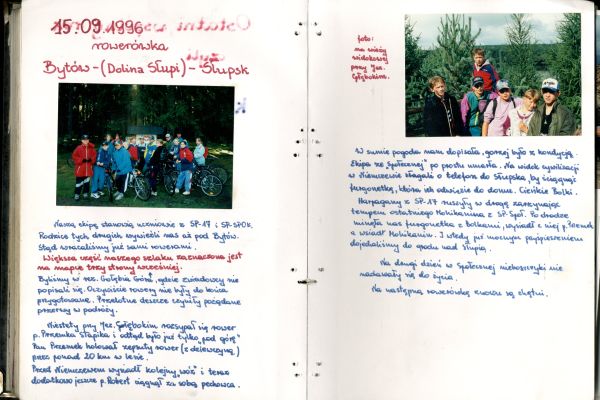 15.09 1996
rowerówka
Bytów - (Dolina Słupi) - Słupsk
Naszą ekipę stanowią uczniowie z SP-17 i SP-SPOŁ.
Rodzice tych drugich wywieźli nas aż pod Bytów.
Stąd wracaliśmy już sami rowerami.
Większa część naszego szlaku zaznaczona jest
na mapie trzy strony wcześniej.
Byliśmy w rez. Gołębia Góra, gdzie zwiadowcy nie
popisali się. Oczywiście rowery nie były do końca
przygotowane. Przelotne deszcze czyniły pożądane
przerwy w podróży.
Niestety przy Jez. Głębokim rozsypał się rower
p. Przemka Słapika i odtąd było już tylko „pod górę"
Pan Przemek holował zepsuty rower (z dziewczyną)
przez ponad 20 km w lesie.
Przed Niemczewem wysiadł kolejny „wóz" i teraz
dodatkowo jeszcze p. Robert ciągnął za sobą pechowca.
foto:
na wieży
widokowej
przy Jez.
Głębokim.
W sumie pogoda nam dopisała, gorzej było z kondycją.
Ekipa ze „Społecznej" po prostu umarła. Na widok cywilizacji
w Niemczewie błagali o telefon do Słupska, by ściągnąć
furgonetkę, która ich odwiezie do domu. Cieńkie Bolki.
Harpagany z SP-17 ruszyły w drogę zarzynając
tempem ostatniego Mohikanina z SP Społ. Po drodze
minęła nas furgonetka z bolkami, wysiadł z niej p.
a wsiadł Mohikanin. I wtedy już mocnym przyspieszeniem
dojechaliśmy do grodu nad Słupią.
Na drugi dzień w Społecznej nieboszczyki nie
nadawały się do życia.
Na następną rowerówkę znowu są chętni.